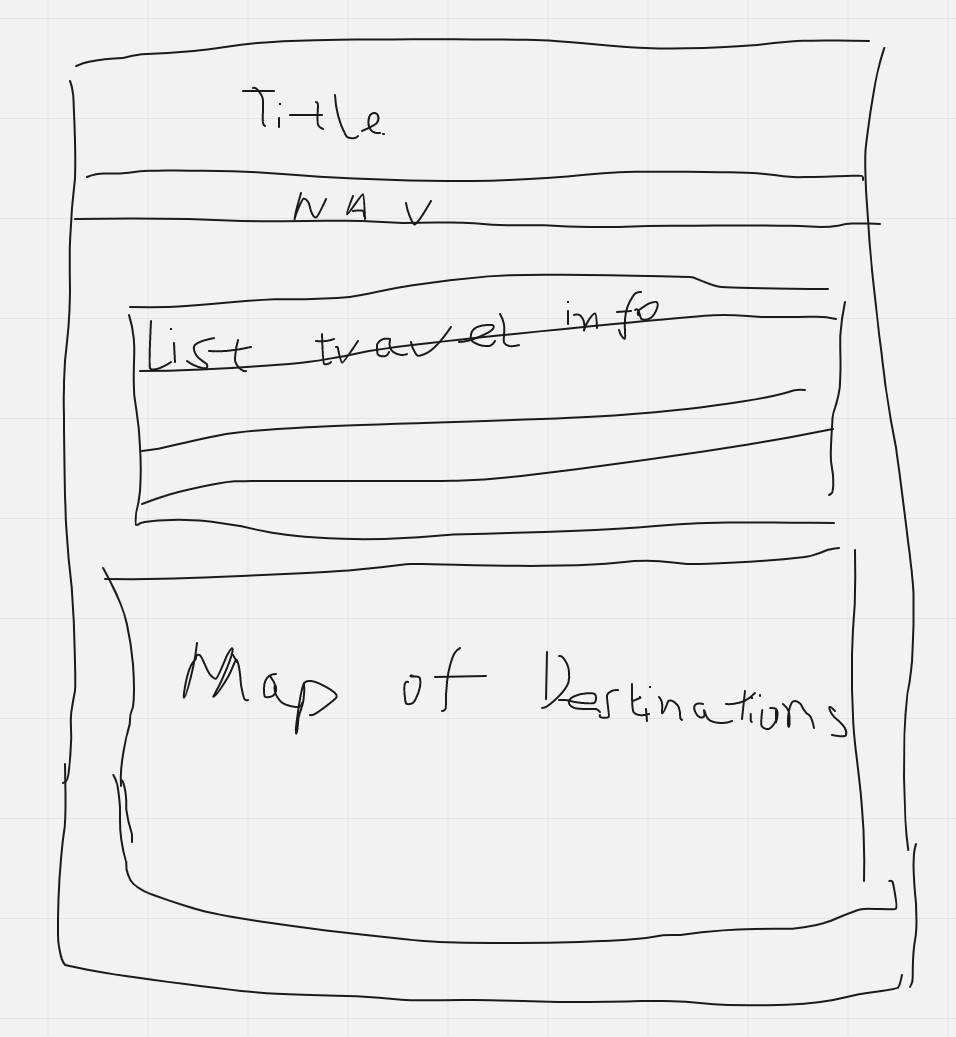 Title
NAV
List travel info
Map of Destinations